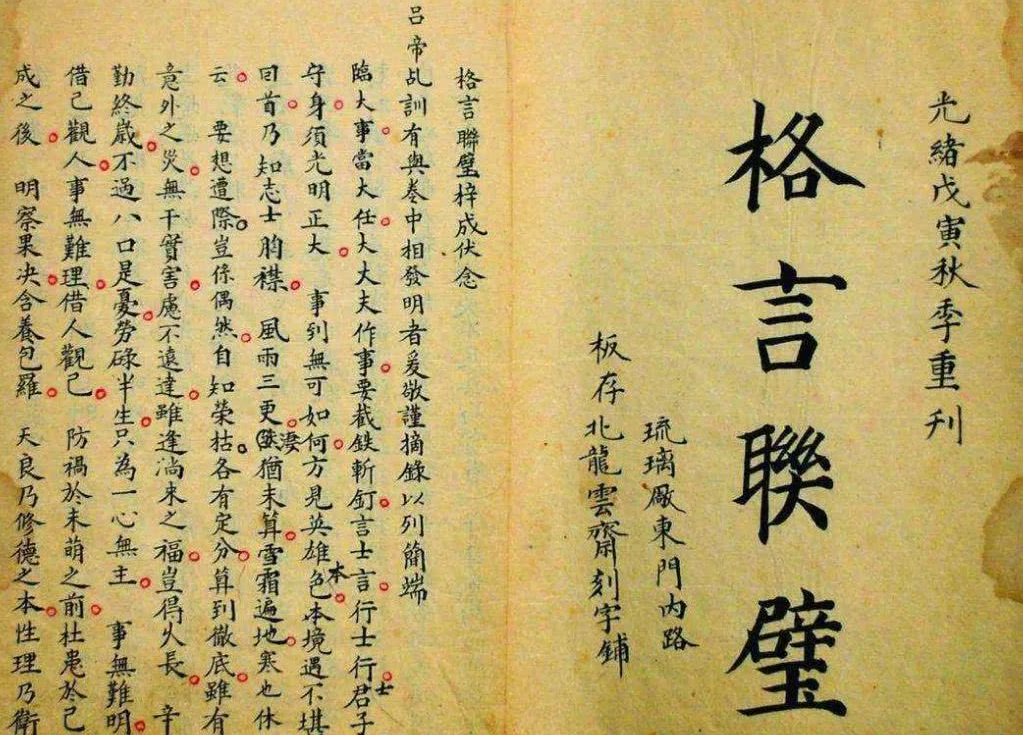 光緒戊寅秋季重刊
格言聯璧
琉璃厰東門內路
板存北龍雲齋刻字鋪
格言聯璧梓成伏念
呂帝乩訓有與卷中相發明者爰敬謹摘錄以列簡端
臨大事當大任大大夫作事要截鉄斬釘言士言行士行君子
士
守身須光明正大 事到無可如何方見英雄色本境遇不堪
本
回首乃知志士胸襟 風雨三更猶未算雪霜遍地寒也休
淒
云 要想遭際豈係偶然自知榮枯各有定分算到徹底雖有
意外之災無干實害慮不遠達雖逢淌來之福豈得久長 辛
勤終歲不過八口是憂勞碌半生只為一心無主 事無難明
借己觀人事無難理借人觀己 防禍於未萌之前杜患於己
成之後 明察果决含養包羅 天良乃修德之本性理乃衛